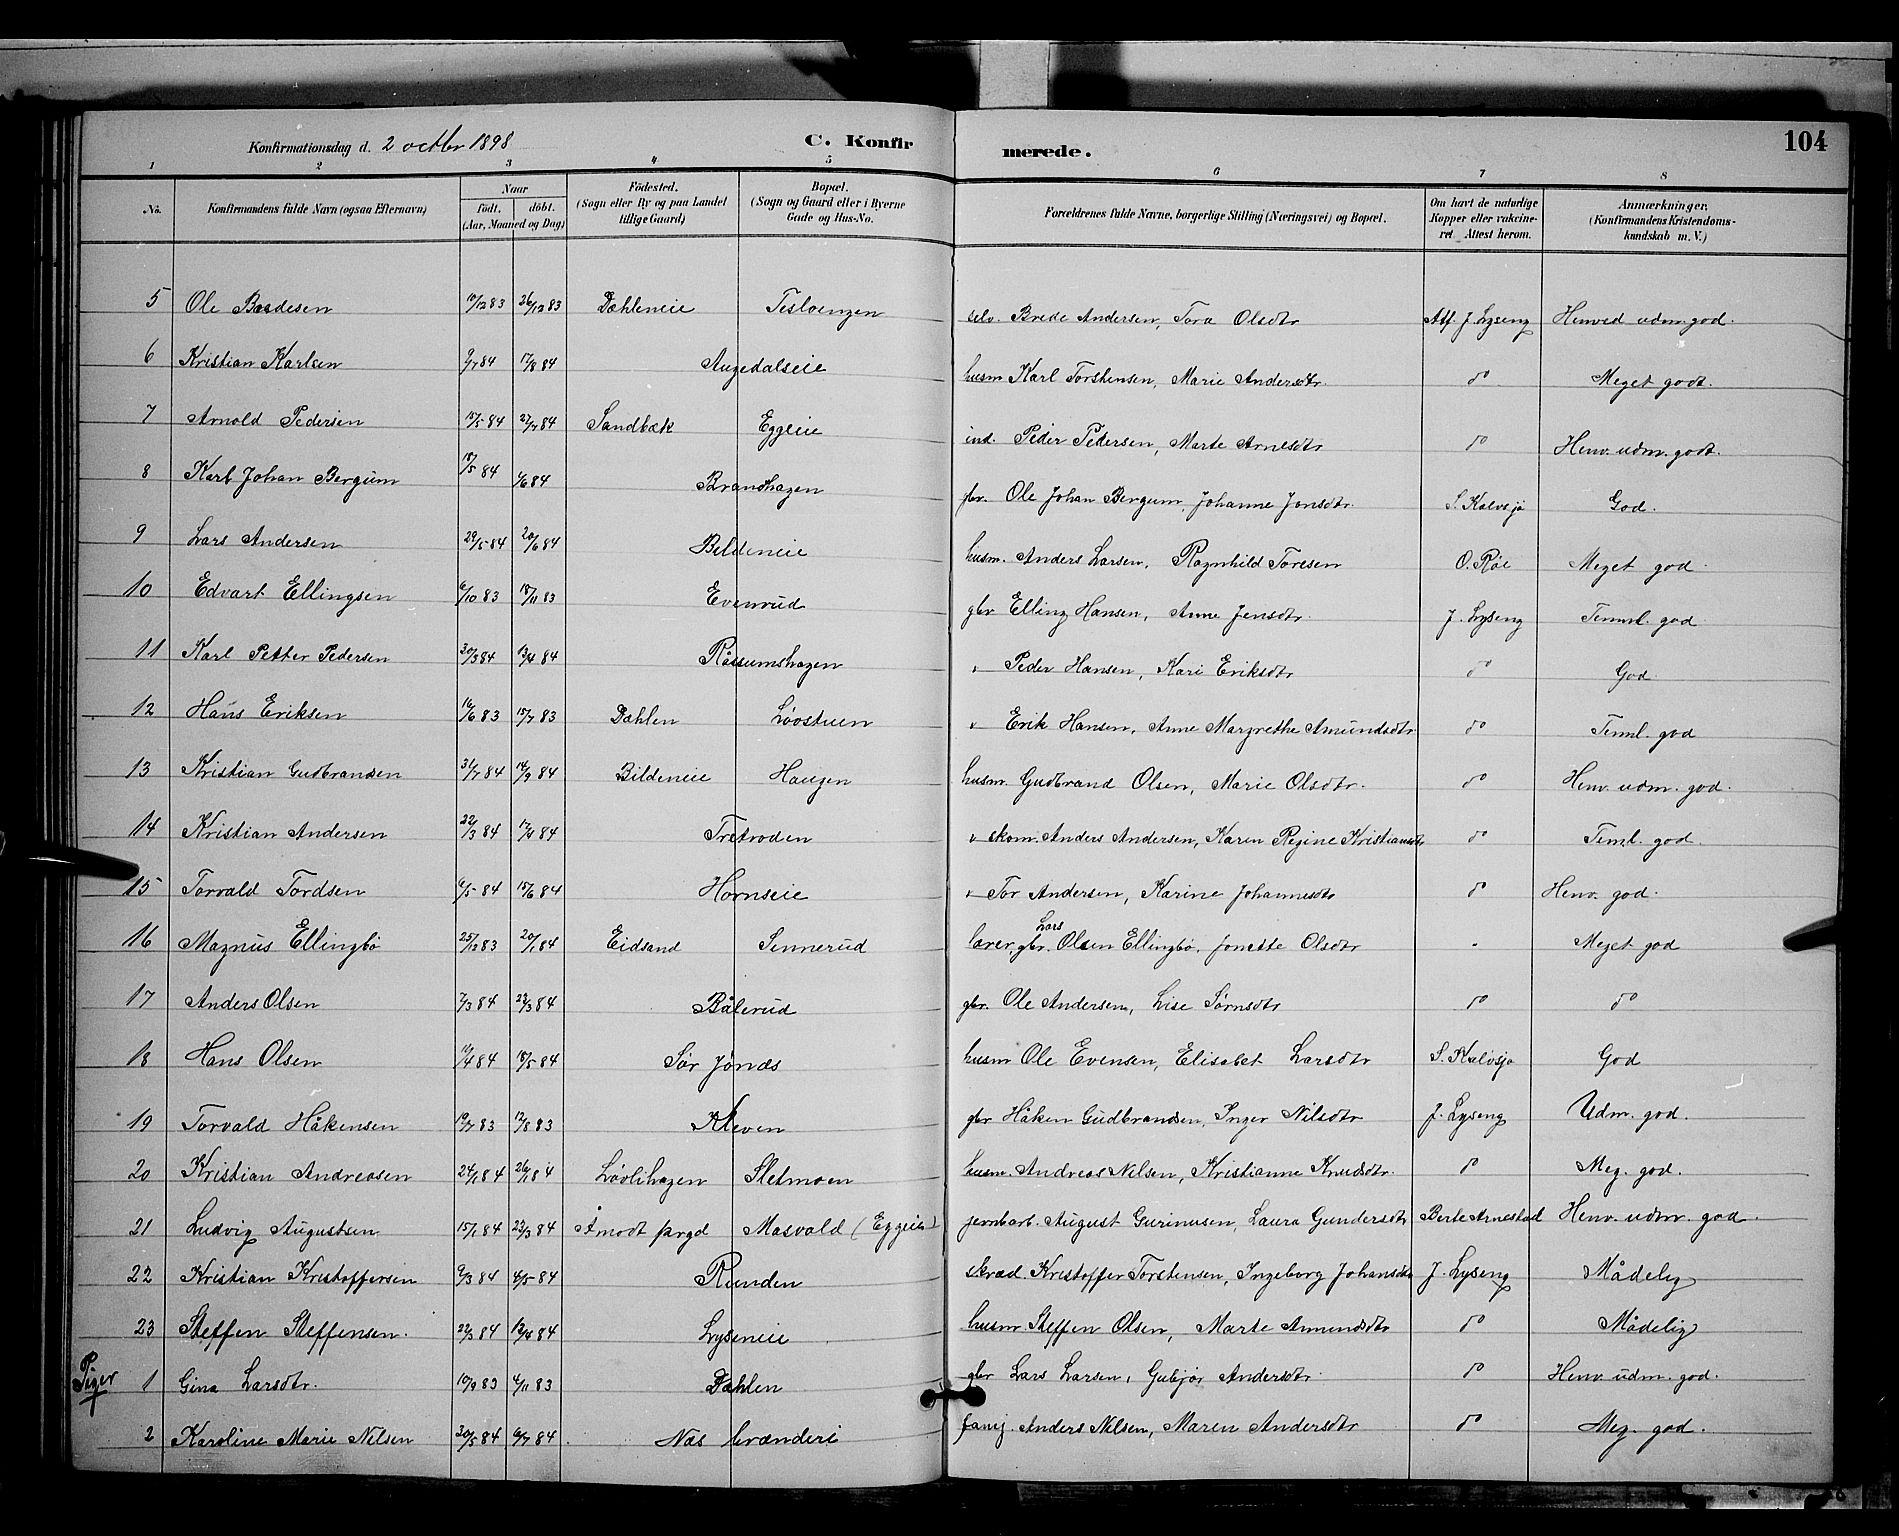 Konfirmationsdag d. 2 octbr 1898 C. Konfir merede. 104
1 2 3 4 5 6 7 8
No. Konfirmandens fulde Navn (ogsaa Efternavn) Naar født. døbt. (Aar, Maaned og Dag) Födested. (Sogn eller By og paa Landet tillige Gaard) Bopæl. (Sogn og Gaard eller i Byerne Gade og Hus-No. Forældrenes fulde Navne, borgerlige Stilling (Næringsvei) og Bopæl. Om havt de naturlige Kopper eller vakcineret. Attest herom. Anmærkninger. (Konfirmandens Kristendomskundskab m. V.)
5 Ole Bredesen 10/12 83 26/12 83 Dæhleneie Tesloengen selv. Brede Andersen, Tora Olsdtr Att. J. Lyseng Henved udm. god.
6 Kristian Karlsen 9/7 84 17/8 84 Augedalseie husm Karl Torstensen, Marie Andersdtr do Meget godt.
7 Arnold Pedersen 15/5 84 27/7 84 Sandbæk Eggeie ind. Peder Pedersen, Marte Arnesdtr do Henv. udm. godt.
8 Karl Johan Bergum 18/5 84 1/6 84 Brandhagen gbr. Ole Johan Bergum, Johanne Jonsdtr. S. Kalvsjø God.
9 Lars Andersen 29/5 84 20/6 84 Bildeneie husm. Anders Larsen, Ragnhild Toresen O. Røe Meget god
10 Edvart Ellingsen 6/10 83 18/11 83 Evenrud gbr Elling Hansen, Anne Jensdtr. J. Lyseng Temml. god
11 Karl Petter Pedersen 30/3 84 13/4 84 Råssumshagen " Peder Hansen, Kari Eriksdtr do God
12 Hans Eriksen 16/6 83 15/7 83 Dæhlen Lövstuen " Erik Hansen, Anne Margrethe Amundsdtr do Teml. god
13 Kristian Gudbrandsen 31/7 84 14/9 84 Bildeneie Haugen husm. Gudbrand Olsen, Marie Olsdtr. do Henv. udm. god.
14 Kristian Andersen 22/3 84 17/4 84 Tretroden " skom. Anders Andersen, Karen Regine Kristiansdtr do Teml. god.
15 Torvald Tordsen 6/5 84 15/6 84 Hornseie " Tor Andersen, Karine Johannesdtr do Henv. god.
16 Magnus Ellingbö 25/12 83 20/1 84 Eidsand Sennerud lærer, gbr. Lars Olsen Ellingbö, Jonette Olsdtr - Meget god
17 Anders Olsen 7/3 84 23/3 84 Bålerud gbr. Ole Andersen, Lise Sørnsdtr do do
18 Hans Olsen 11/4 84 18/5 84 Sør Jønås husm Ole Evensen, Elisabet Larsdtr S. Kalvsjø God
19 Torvald Håkensen 19/7 83 12/8 83 Kleven gbr Håken Gudbrandsen, Inger Nilsdtr J. Lyseng Udm. god.
20 Kristian Andreasen 24/1 84 26/1 84 Lövlihagen Sletmoen husm. Andreas Nilsen, Kristianne Knudsdtr. do Meg. god.
21 Ludvig Augustsen 15/1 84 23/3 84 Åmodt prgd Masvald (Eggeie) jernbarb. August Gurinusen, Laura Gundersdtr Berte Arnestad Henv. udm. god.
22 Kristian Kristoffersen 9/3 84 4/5 84 Runden skræd. Kristoffer Torstensen, Ingeborg Johansdtr J. Lyseng Mådelig
23 Steffen Steffensen. 22/3 84 12/4 84 Lyseneie husm Steffen Olsen, Marte Amundsdtr do Mådelig
Piger
1 Gina Larsdtr. 10/9 83 4/11 83 Dæhlen gbr Lars Larsen, Gubjør Andersdtr. do Henv. udm. god.
2 Karoline Marie Nilsen 20/5 84 6/7 84 Næs brænderi Anders Nilsen, Maren Andersdtr do Meg. god.